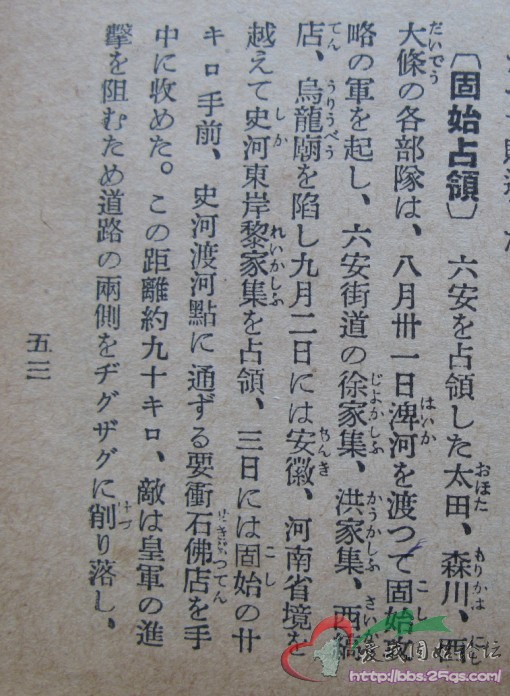 〔固始占領〕 六安を占領した太田、森川、西
大條の各部隊は、八月卅一日淠河を渡つて固始攻
略の軍を起し、六安街道の徐家集、洪家集、西
店、烏龍廟を陷し九月二日には安徽、河南省境を
越えて史河東岸黎家集を占領、三日には固始の廿
キロ手前、史河渡河點に通ずる要衝石佛店を手
中に收めた。この距離約九十キロ、敵は皇軍の進
擊を阻むため道路の兩側をヂグザグに削り落し、
五三
愛我固始论坛
http://bbs.25qs.com/